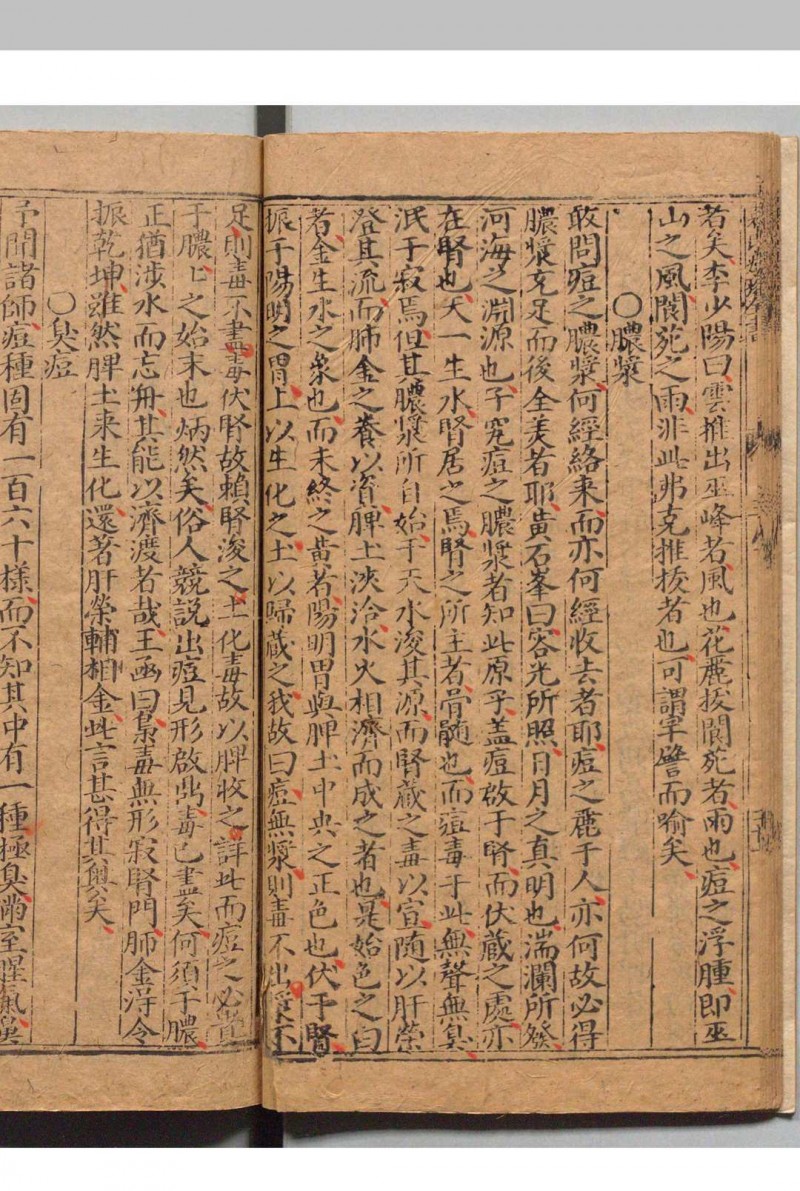 者矣李少陽曰雲推出巫峰者風也花麗拔閬苑者雨也痘之浮腫即巫
山之風閬苑之雨非此弗克推拔者也可謂罕譬而喻矣
○膿漿
敢問痘之膿漿何經絡来而亦何經收去者耶痘之麗于人亦何故必得
膿漿充足而後全美者耶黄石峯曰容光所照日月之真明也湍瀾所發
河海之淵源也子究痘之膿漿者知此原乎盖痘啟于腎而伏藏之處亦
在腎也天一生水腎居之焉腎之所主者骨髓也而痘毒于此無聲無臭
泯于寂焉但其膿漿所自始于天水浚其源而腎藏之毒以宣随以肝榮
登其流而肺金之養以資脾土浹洽水火相濟而成之者也是始色之白
者金生水之象也而未終之黄者陽明胃與脾土中央之正色也伏于腎
振于陽明之胃土以生化之土以歸藏之我故曰痘無漿則毒不出漿不
足則毒不盡毒伏腎故賴腎浚之土化毒故以脾收之詳此而痘之必貴
于膿上之始末也炳然矣俗人競説出痘見形啟齿毒已盡矣何須于膿
正猶涉水而忘舟其能以濟渡者哉王凾曰梟毒無形寂腎門肺金淂令
振乾坤雖然脾土来生化還著肝榮輔相金此言甚得其奥矣
○臭痘
予聞諸師痘種固有一百六十樣而不知其中有一種極臭滿室腥氣